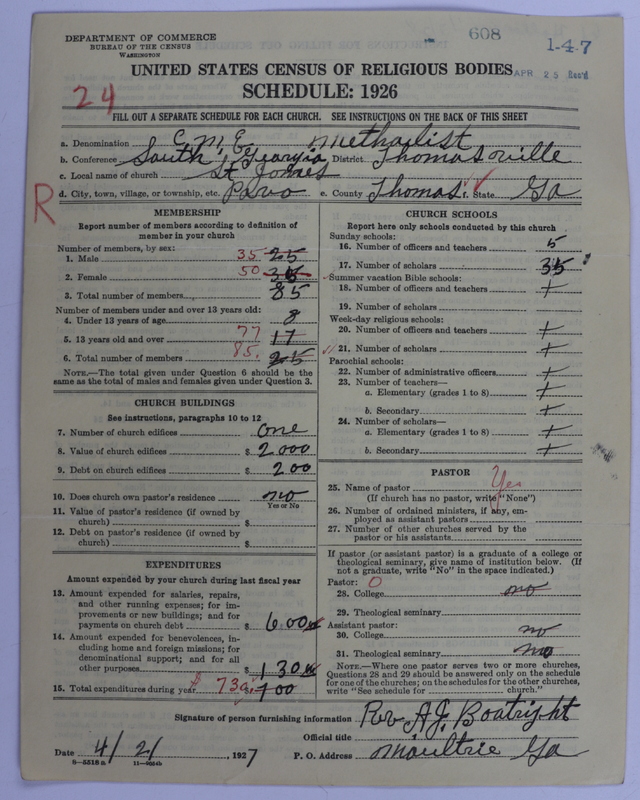 DEPARTMENT OF COMMERCE
BUREAU OF THE CENSUS
WASHINGTON
608
1-4-7
UNITED STATES CENSUS OF RELIGIOUS BODIES
APR 25 Rec'd
SCHEDULE: 1926
24
FILL OUT A SEPARATE SCHEDULE FOR EACH CHURCH. SEE INSTRUCTIONS ON THE BACK OF THIS SHEET
a. Denomination C. M. E. Methodist
b. Conference South Georgia District Thomasville
c. Local name of church St Johnes
d. City, town, village, or township, etc. Pavo e. County Thomas f. State Ga
R
MEMBERSHIP
Report number of members according to definition of member in your church
Number of members, by sex:
1. Male 35 25
2. Female 50
3. Total number of members 85
Number of members under and over 13 years old:
4. Under 13 years of age 8
5. 13 years old and over 77 17
6. Total number of members 85. 25
NOTE.—The total given under Question 6 should be the
same as the total of males and females given under Question 3.
CHURCH BUILDINGS
See instructions, paragraphs 10 to 12
7. Number of church edifices one
8. Value of church edifices $ 2000
9. Debt on church edifices $ 200
10. Does church own pastor's residence no
Yes or No
11. Value of pastor's residence (if owned by
church) $
12. Debt on pastor's residence (if owned by
church) $
EXPENDITURES
Amount expended by your church during last fiscal year
13. Amount expended for salaries, repairs,
and other running expenses; for im-
provements or new buildings; and for
payments on church debt $ 600
14. Amount expended for benevolences, in-
cluding home and foreign missions; for
denominational support; and for all
other purposes $ 130
15. Total expenditures during year $ 730
CHURCH SCHOOLS
Report here only schools conducted by this church
Sunday schools:
16. Number of officers and teachers 5
17. Number of scholars 35
Summer vacation Bible schools:
18. Number of officers and teachers +
19. Number of scholars
Week-day religious schools:
20. Number of officers and teachers +
21. Number of scholars +
Parochial schools:
22. Number of administrative officers +
23. Number of teachers—
a. Elementary (grades 1 to 8) +
b. Secondary +
24. Number of scholars—
a. Elementary (grades 1 to 8) +
b. Secondary +
PASTOR
25. Name of pastor Yes
(If church has no pastor, write "None")
26. Number of ordained ministers, if any, em-
ployed as assistant pastors
27. Number of other churches served by the
pastor or his assistants
If pastor (or assistant pastor) is a graduate of a college or
theological seminary, give name of institution below. (If
not a graduate, write "No" in the space indicated.)
Pastor: 0
28. College no
29. Theological seminary
Assistant pastor:
30. College no
31. Theological seminary no
NOTE.—Where one pastor serves two or more churches,
Questions 28 and 29 should be answered only on the schedule
for one of the churches; on the schedules for the other churches,
write "See schedule for church."
Signature of person furnishing information Rev A. J. Boatright
Official title
Date 4/21, 1927 P. O. Address Moultrie Ga
8—5518 a 11—9054b